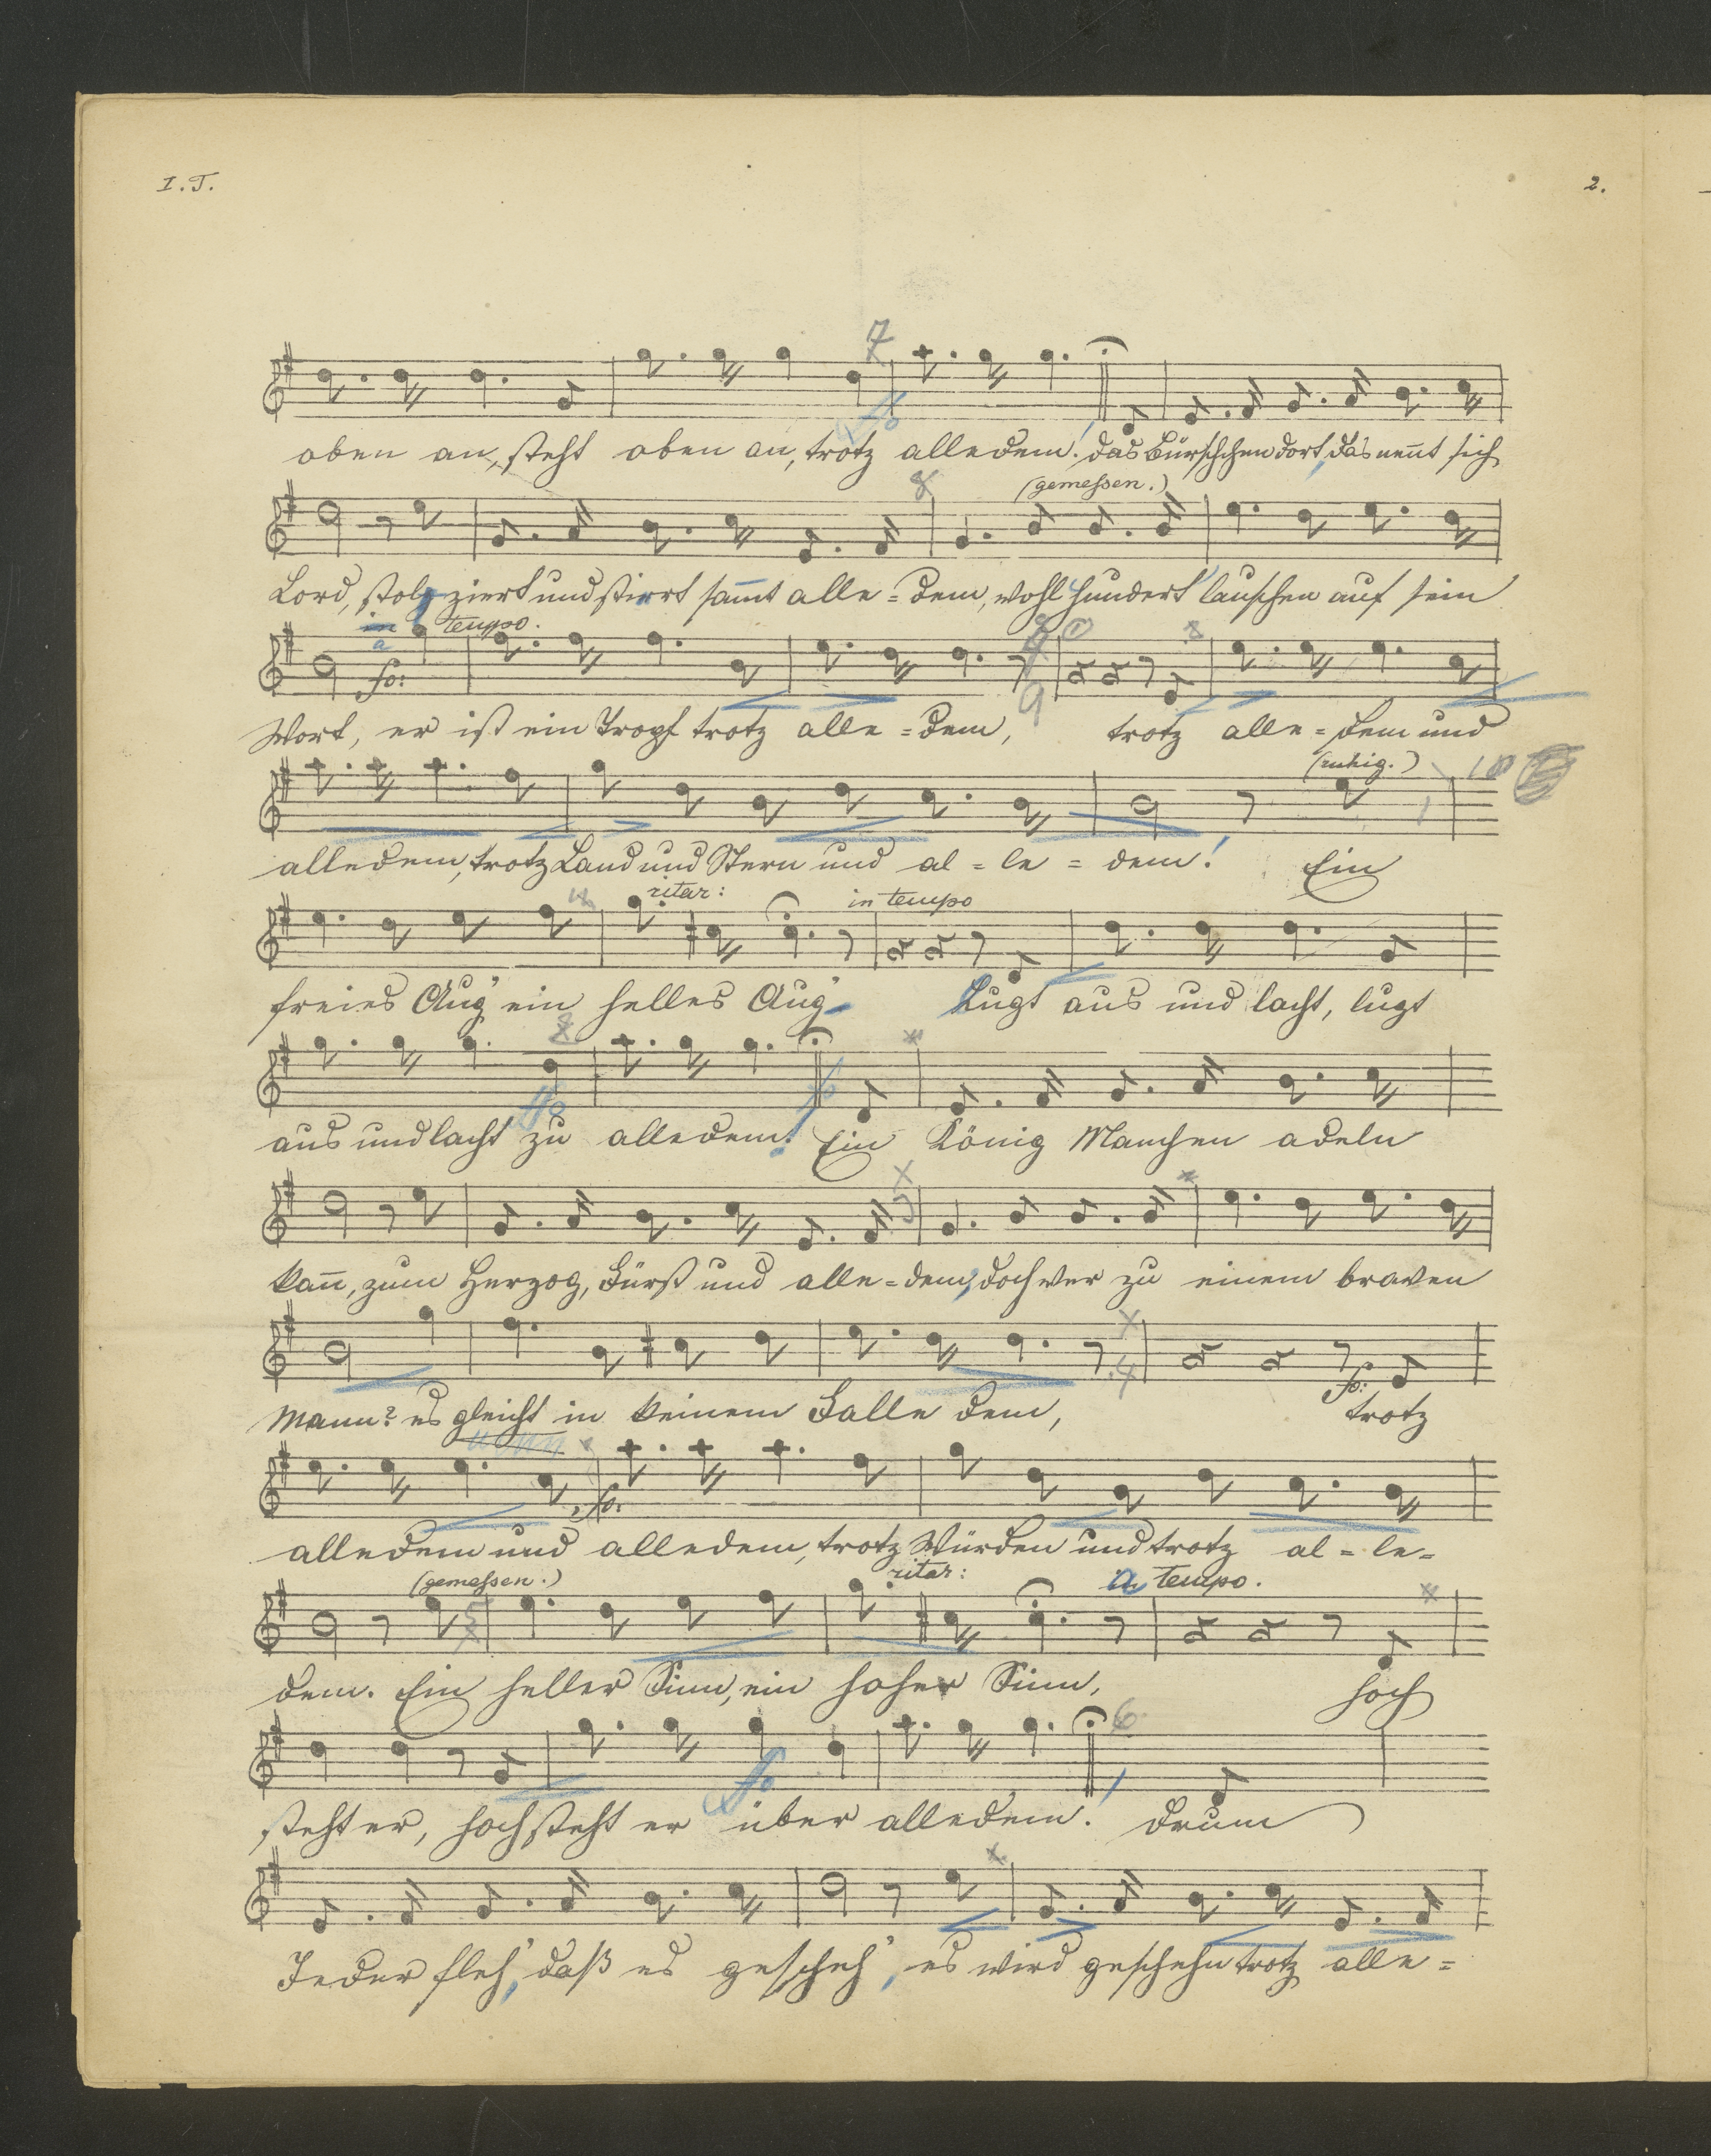 I. T.
2.
7
oben an, steht oben an, trotz alledem! das Bürschchen dort, das nen̄t sich
8 (gemeßen.)
Lord, stolziert und stiert sam̄t alle=dem, wohl hundert lauschen auf sein
in a tempo.
fo:
9
Wort, er ist ein Tropf trotz alle=dem, trotz alle=dem und
(ruhig.) 10
alledem, trotz Band und Stern und al=le=dem! Ein
ritar: in tempo
freies Aug' ein helles Aug' Lugt aus und lacht, lugt
ffo fo
aus und lacht zu alledem! Ein König Manchen adeln
kan̄, zum Herzog, Fürst und alle=dem, doch wer zu einem braven
4 fo:
Mann? es gleicht in keinem Falle dem, trotz
fo:
alledem und alledem, trotz Würden und trotz al=le=
(gemeßen.) ritar: a tempo.
5
dem. Ein heller Sinn, ein hoher Sinn, hoch
ffo 6
steht er, hoch steht er über alledem! Drum
Jeder fleh', daß es gescheh', es wird geschehn trotz alle=